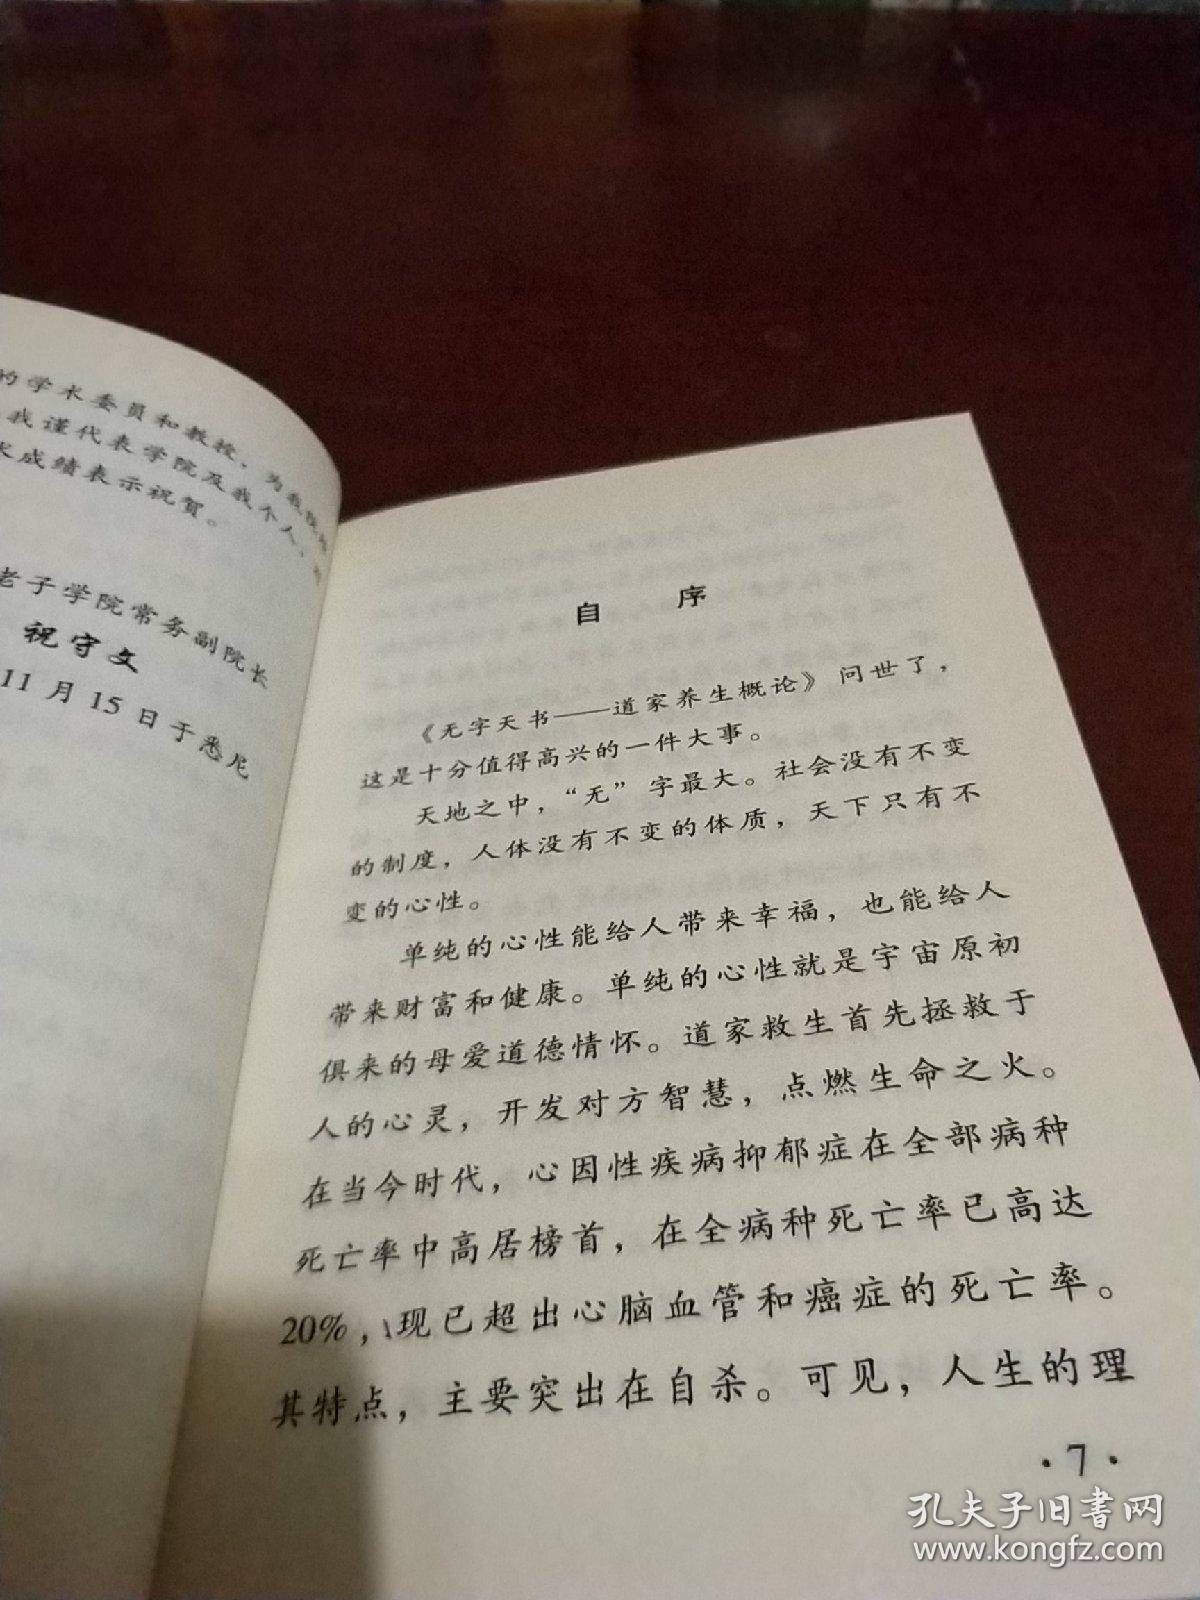 的学术委员和教授，为我院
我谨代表学院及我个人，
成绩表示祝贺。
老子学院常务副院长
祝守文
11月15日于悉尼
自 序
《无字天书——道家养生概论》问世了，
这是十分值得高兴的一件大事。
天地之中，“无”字最大。社会没有不变
的制度，人体没有不变的体质，天下只有不
变的心性。
单纯的心性能给人带来幸福，也能给人
带来财富和健康。单纯的心性就是宇宙原初
俱来的母爱道德情怀。道家救生首先拯救于
人的心灵，开发对方智慧，点燃生命之火。
在当今时代，心因性疾病抑郁症在全部病种
死亡率中高居榜首，在全病种死亡率已高达
20%，现已超出心脑血管和癌症的死亡率。
其特点，主要突出在自杀。可见，人生的理
·7·
孔夫子旧书网
www.kongfz.com